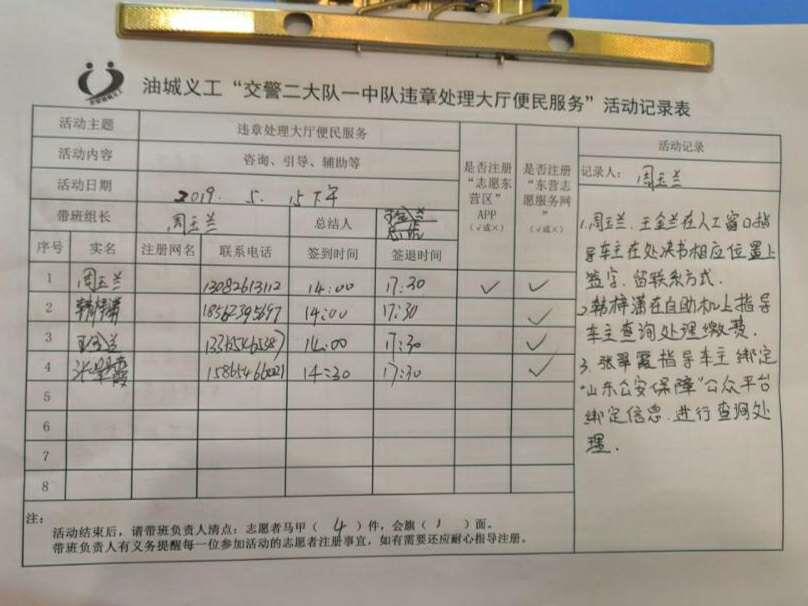 油城义工“交警二大队一中队违章处理大厅便民服务”活动记录表
活动主题 违章处理大厅便民服务
活动内容 咨询、引导、辅助等
活动日期 2019. 5. 15下午
带班组长 周玉兰 总结人 王金兰
是否注册“志愿东营区”APP（√或×）
是否注册“东营志愿服务网”（√或×）
序号 实名 注册网名 联系电话 签到时间 签退时间
1 周玉兰 13082613112 14:00 17:30 ✓ ✓
2 韩梓潇 18562395697 14:00 17:30 ✓
3 王金兰 14:00 17:30 ✓
4 张翠霞 14:30 17:30 ✓
5
6
7
8
活动记录
记录人： 周玉兰
1.周玉兰、王金兰在人工窗口指
导车主在处决书相应位置上
签字、留联系方式.
2.韩梓潇在自助机上指导
车主查询处理缴费.
3.张翠霞指导车主绑定
“山东公安保障”公众平台
绑定信息.进行查询处
理.
注:
活动结束后，请带班负责人清点：志愿者马甲（ 4 ）件，会旗（ 1 ）面。
带班负责人有义务提醒每一位参加活动的志愿者注册事宜，如有需要还应耐心指导注册。